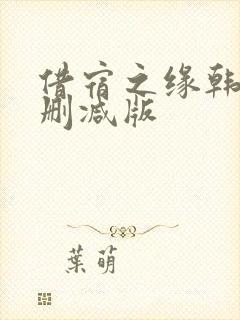 借宿之缘韩
删减版
葉萌